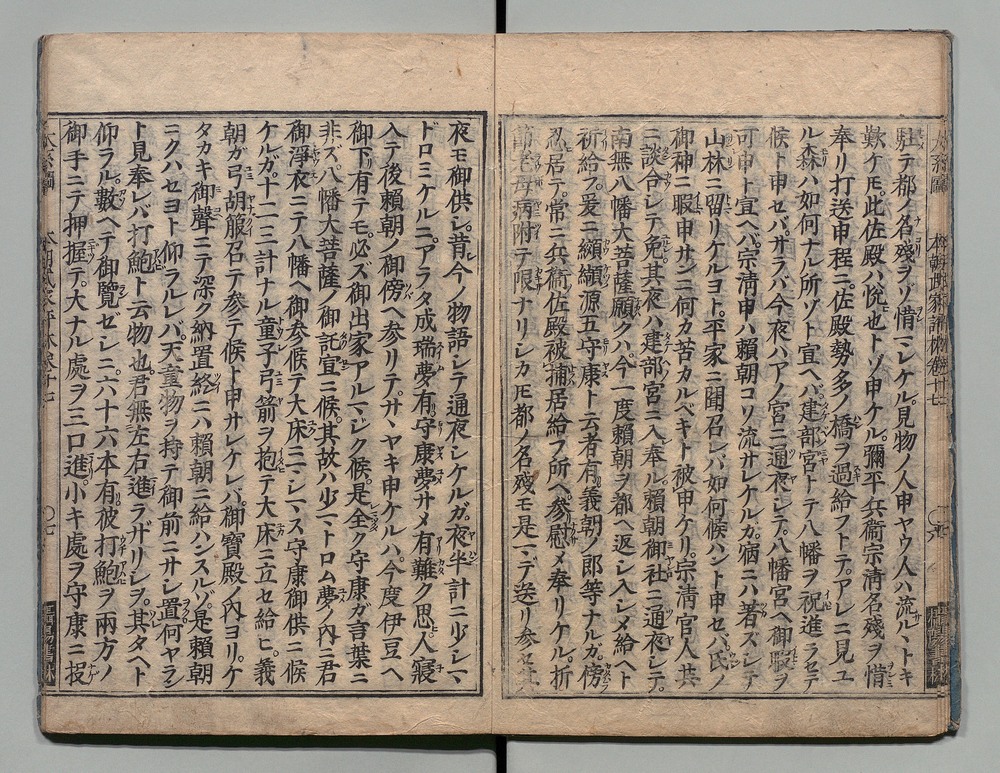 駐テ都ノ名殘ヲゾ惜マレケル。見物ノ人申ヤウ人ハ流ルヽトキ
歎ケ𪜈。此佐殿ハ悦也トゾ申ケル。彌平兵衞宗清名殘ヲ惜
奉リ打送申程ニ。佐殿勢多ノ橋ヲ過給フトテ。アレニ見ユ
ル森ハ如何ナル所ゾト宣ヘバ。建部宮トテ八幡ヲ祝進ラセテ
候ト申セバ。サラバ今夜ハアノ宮ニ通夜シテ。八幡宮ヘ御暇ヲ
可申ト宣ヘバ。宗清申ハ賴朝コソ流サレケルガ。宿ニハ著ズシテ
山林ニ留リケルヨト。平家ニ聞召レバ如何候ハント申セバ。氏ノ
御神ニ暇申サンニ何カ苦カルベキト被申ケリ。宗清官人共
ニ談合シテ免。其夜ハ建部宮ニ入奉ル。賴朝御社ニ通夜シテ。
南無八幡大菩薩願クハ。今一度賴朝ヲ都ヘ返シ入シメ給ヘト
祈給フ。爰ニ纐纈源五守康ト云者有。義朝ノ郎等ナルガ。傍
忍居テ。常ニ兵衞佐殿被捕居給フ所ヘ。參慰メ奉リケル。折
節老母病附テ限ナリシカ𪜈。都ノ名殘モ是マデ送リ參セ
夜モ御供シ。昔今ノ物語シテ通夜シケルガ。夜半計ニ少シマ
ドロミケルニ。アラタ成瑞夢有。守康夢サメ有難ク思。人寢
入テ後賴朝ノ御傍ヘ參リテ。サヽヤキ申ケルハ。今度伊豆ヘ
御下有テモ。必ズ御出家アルマジク候。是全ク守康ガ言葉ニ
非ズ。八幡大菩薩ノ御託宣ニ候。其故ハ少マドロム夢ノ內ニ君
御淨衣ニテ八幡ヘ御參候テ大床ニマシマス。守康御供ニ候
ケルガ。十二三計ナル童子弓箭ヲ抱テ大床ニ立セ給ヒ。義
朝ガ弓胡籙召テ參テ候ト申サレケレバ。御寶殿ノ內ヨリ。ケ
タカキ御聲ニテ深ク納置。終ニハ賴朝ニ給ハンスルゾ。是賴朝
ニクハセヨト仰ラルレバ。天童物ヲ持テ御前ニサシ置。何ヤラン
ト見奉レバ打鮑ト云物也。君無左右進ラザリシヲ。其タヘト
仰ラル。數ヘテ御覽ゼシニ。六十六本有。彼打鮑ヲ兩方ノ
御手ニテ押握テ。大ナル處ヲ三口進。小キ處ヲ守康ニ投